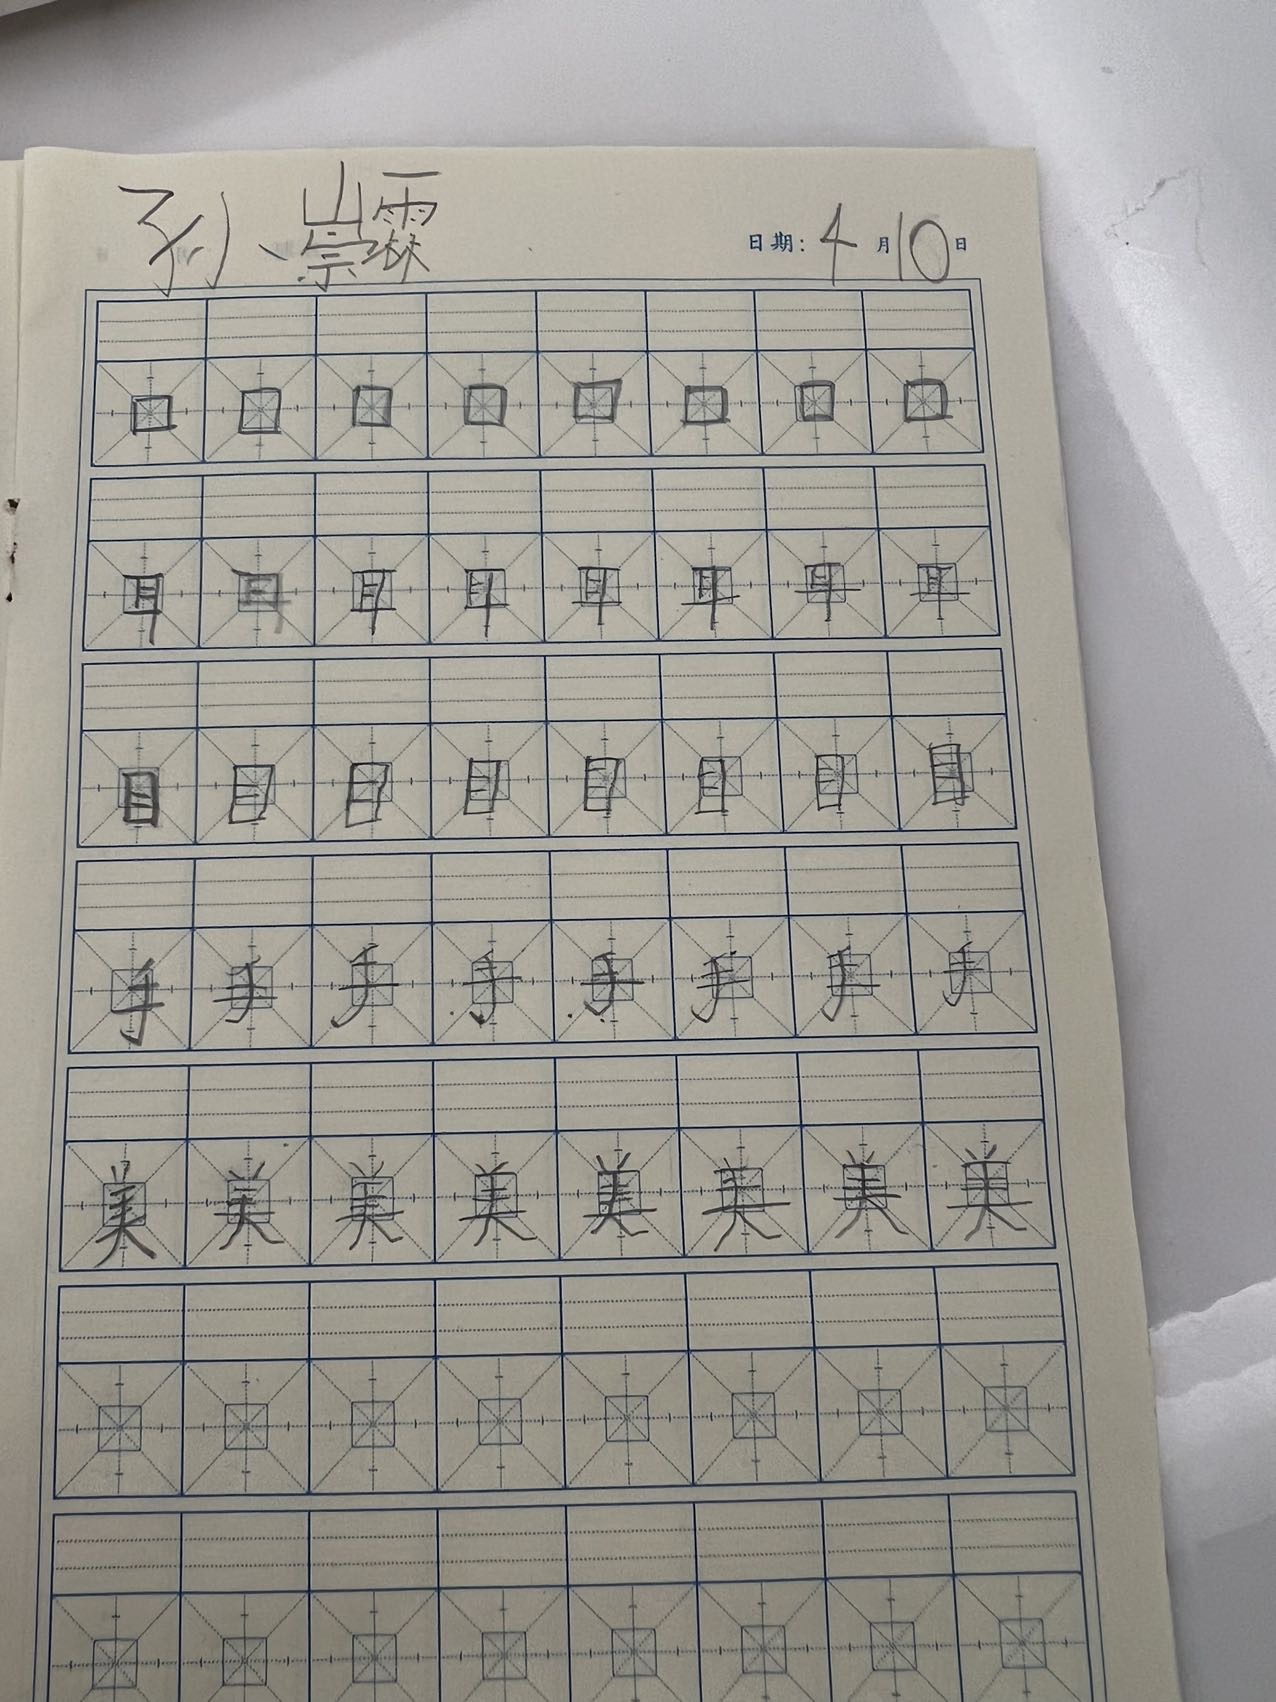 孙崇霖
日期:4月10日
口口口口口口口口
耳耳耳耳耳耳耳耳
目目目目目目目目
手手手手手手手手
美美美美美美美美